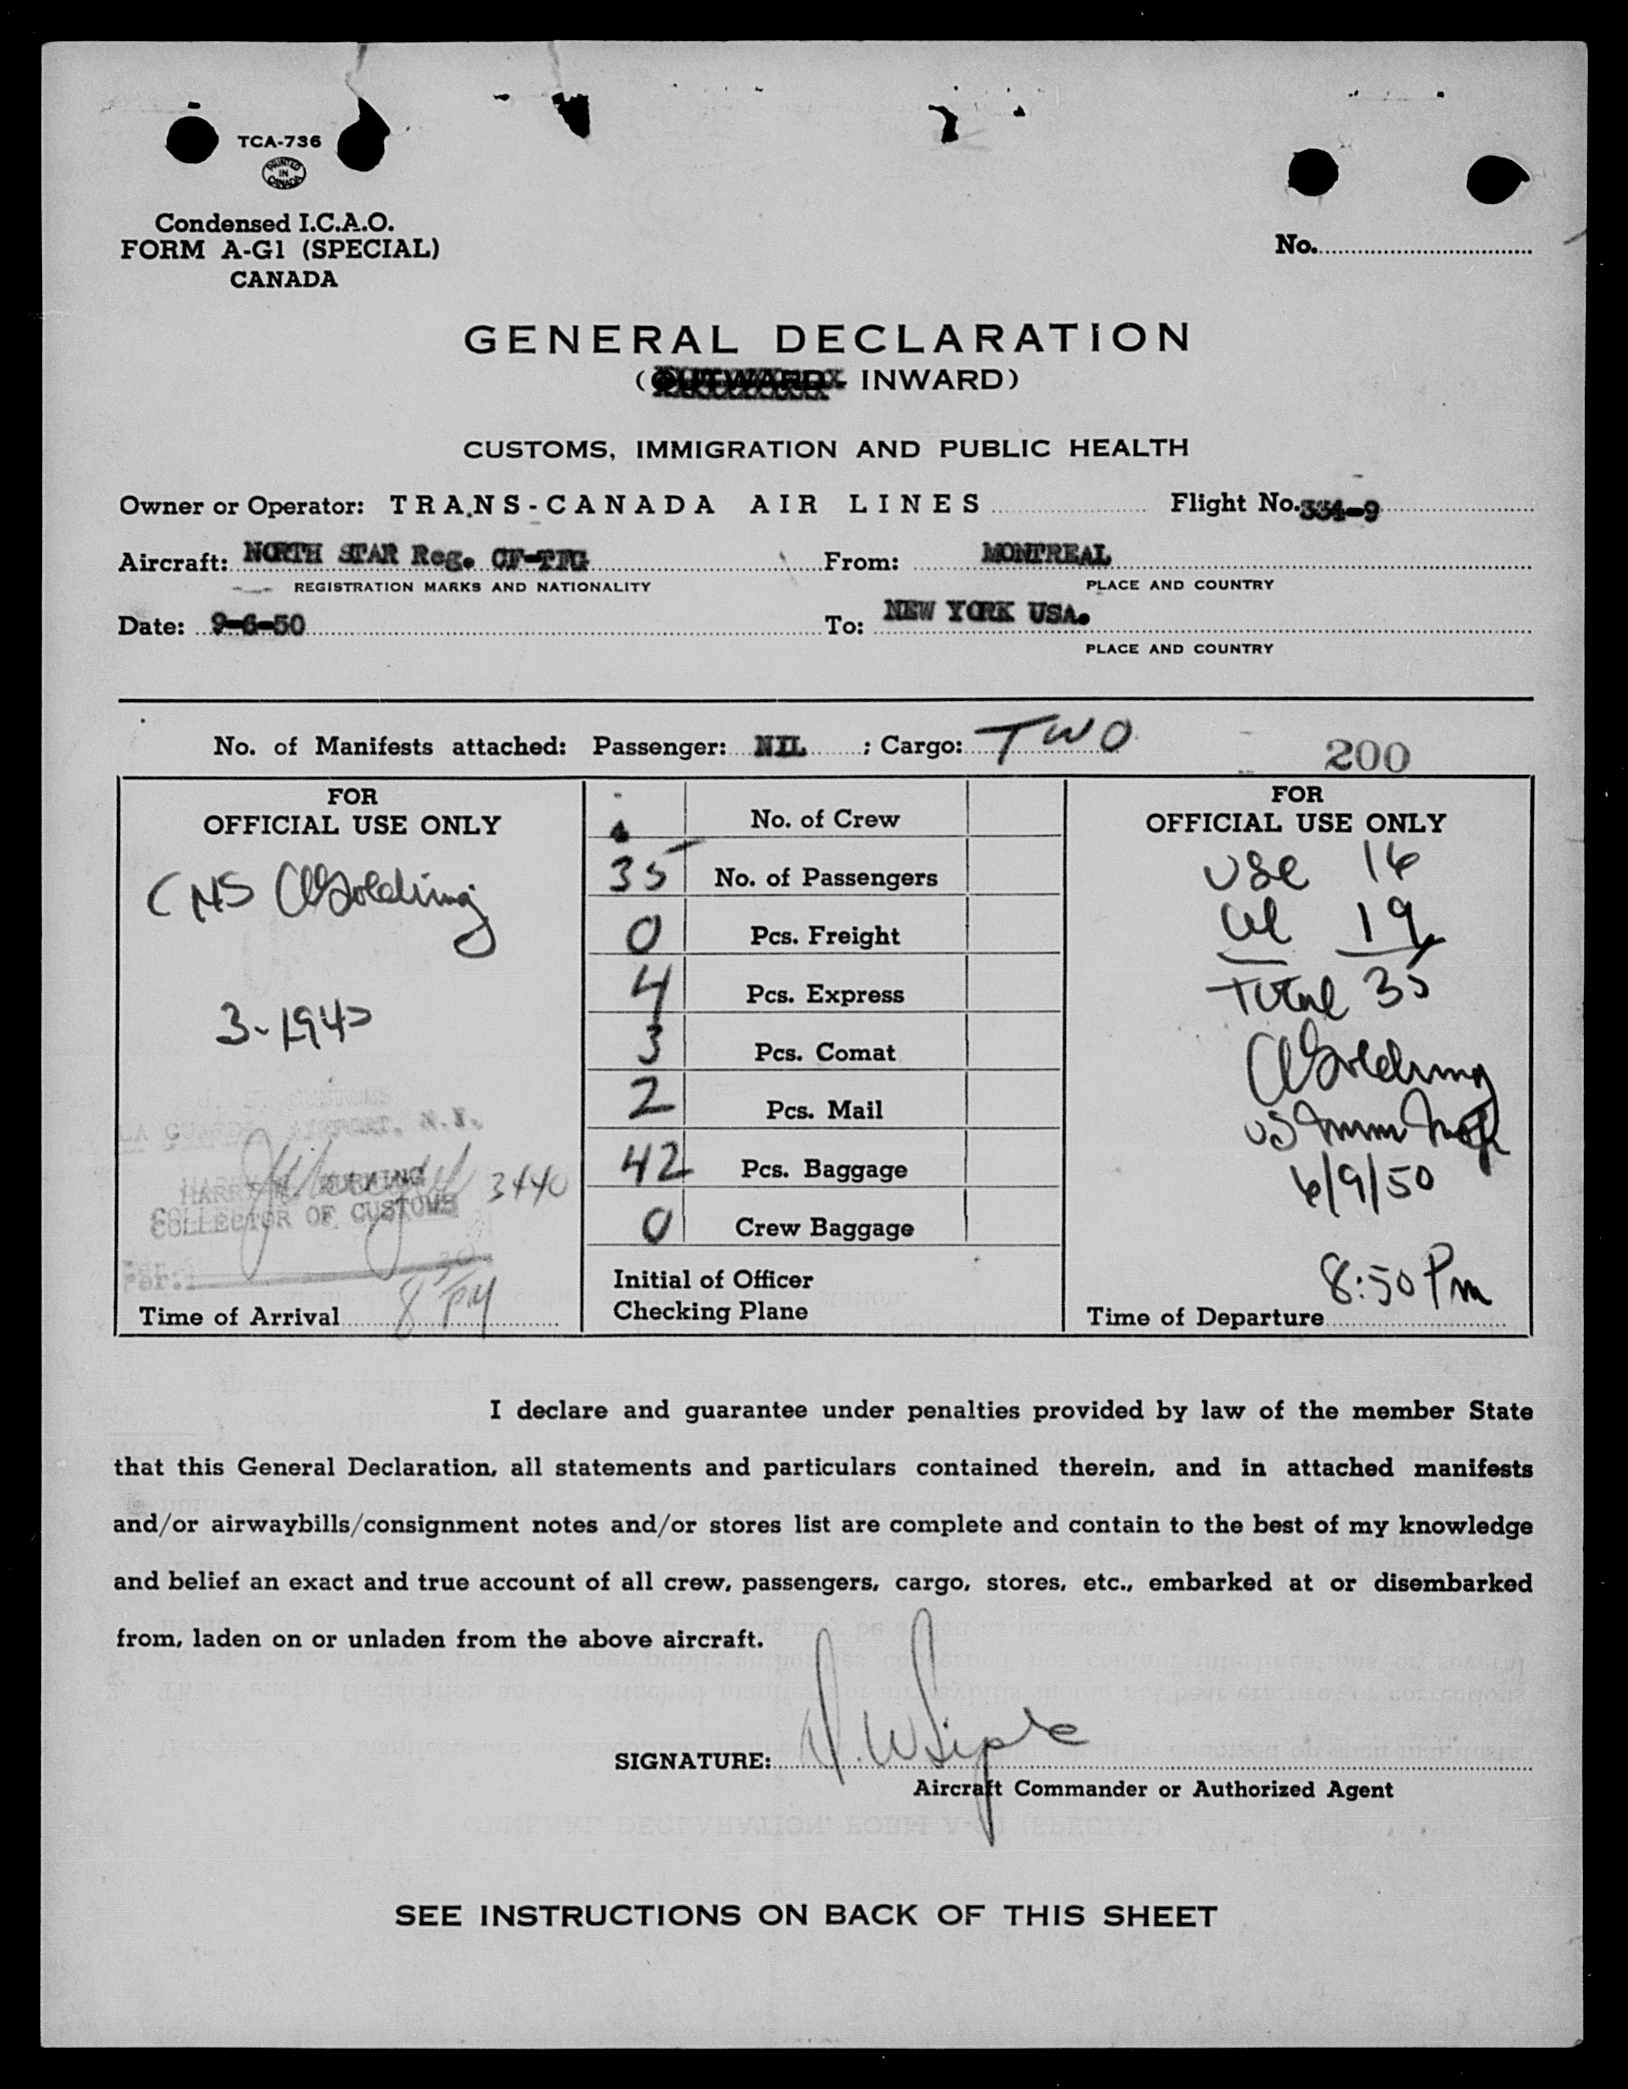 TCA-736
PRINTED IN CANADA
Condensed I.C.A.O.
FORM A-G1 (SPECIAL)
CANADA
No.
GENERAL DECLARATION
(OUTWARD - INWARD)
CUSTOMS, IMMIGRATION AND PUBLIC HEALTH
Owner or Operator: TRANS-CANADA AIR LINES Flight No. 334-9
Aircraft: NORTH STAR Reg. From: MONTREAL
REGISTRATION MARKS AND NATIONALITY PLACE AND COUNTRY
Date: 9-6-50 To: NEW YORK USA.
PLACE AND COUNTRY
No. of Manifests attached: Passenger: NIL ; Cargo: TWO
200
FOR
OFFICIAL USE ONLY
Golding
LA GUARDIA AIRPORT, N.Y.
HARRY M. DURNING 3440
COLLECTOR OF CUSTOMS
Per:
Time of Arrival 8 30 PM
No. of Crew
35 No. of Passengers
0 Pcs. Freight
4 Pcs. Express
3 Pcs. Comat
2 Pcs. Mail
42 Pcs. Baggage
0 Crew Baggage
Initial of Officer
Checking Plane
FOR
OFFICIAL USE ONLY
USC 16
19
Total 35
Golding
US Imm
6/9/50
8:50 Pm
Time of Departure
I declare and guarantee under penalties provided by law of the member State
that this General Declaration, all statements and particulars contained therein, and in attached manifests
and/or airwaybills/consignment notes and/or stores list are complete and contain to the best of my knowledge
and belief an exact and true account of all crew, passengers, cargo, stores, etc., embarked at or disembarked
from, laden on or unladen from the above aircraft.
SIGNATURE:
Aircraft Commander or Authorized Agent
SEE INSTRUCTIONS ON BACK OF THIS SHEET